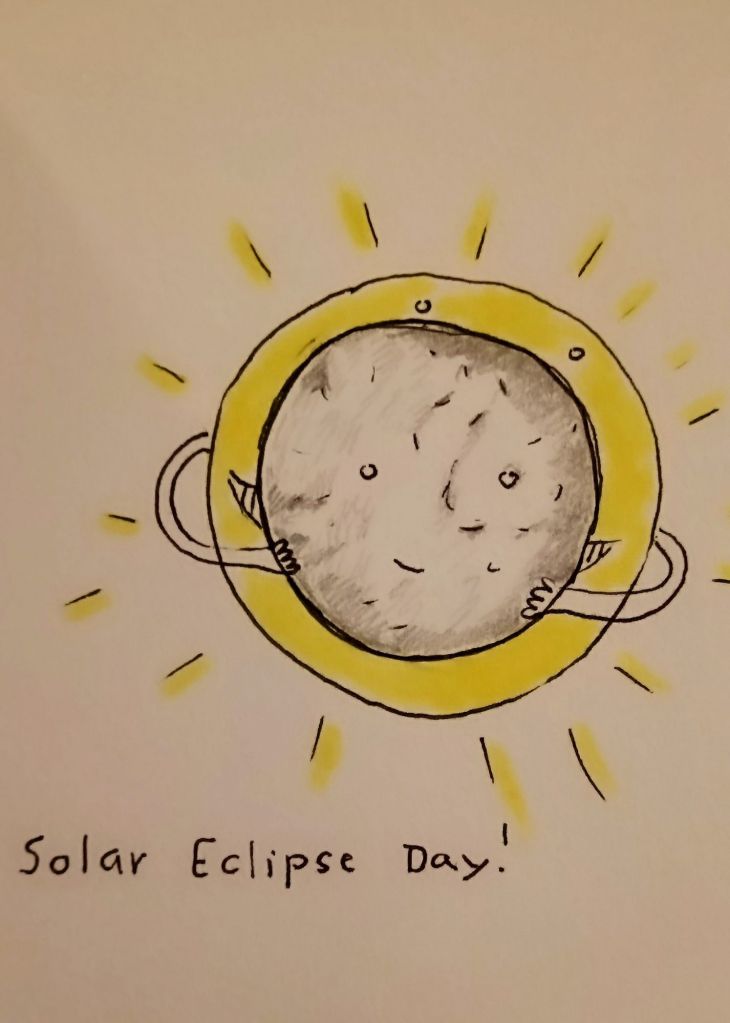 Solar Eclipse Day!